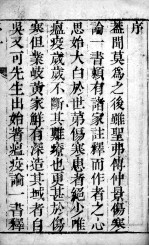 序
蓋聞莫爲之後雖聖弗傳仲景傷寒
論一書頼有諸家註釋而作者之心
思始大白於世第傷寒患者絕少唯
瘟疫歲歲不斷其難療也更甚於傷
寒但業岐黃家鮮有深造其域者自
吳又可先生出始著瘟疫論一書釋